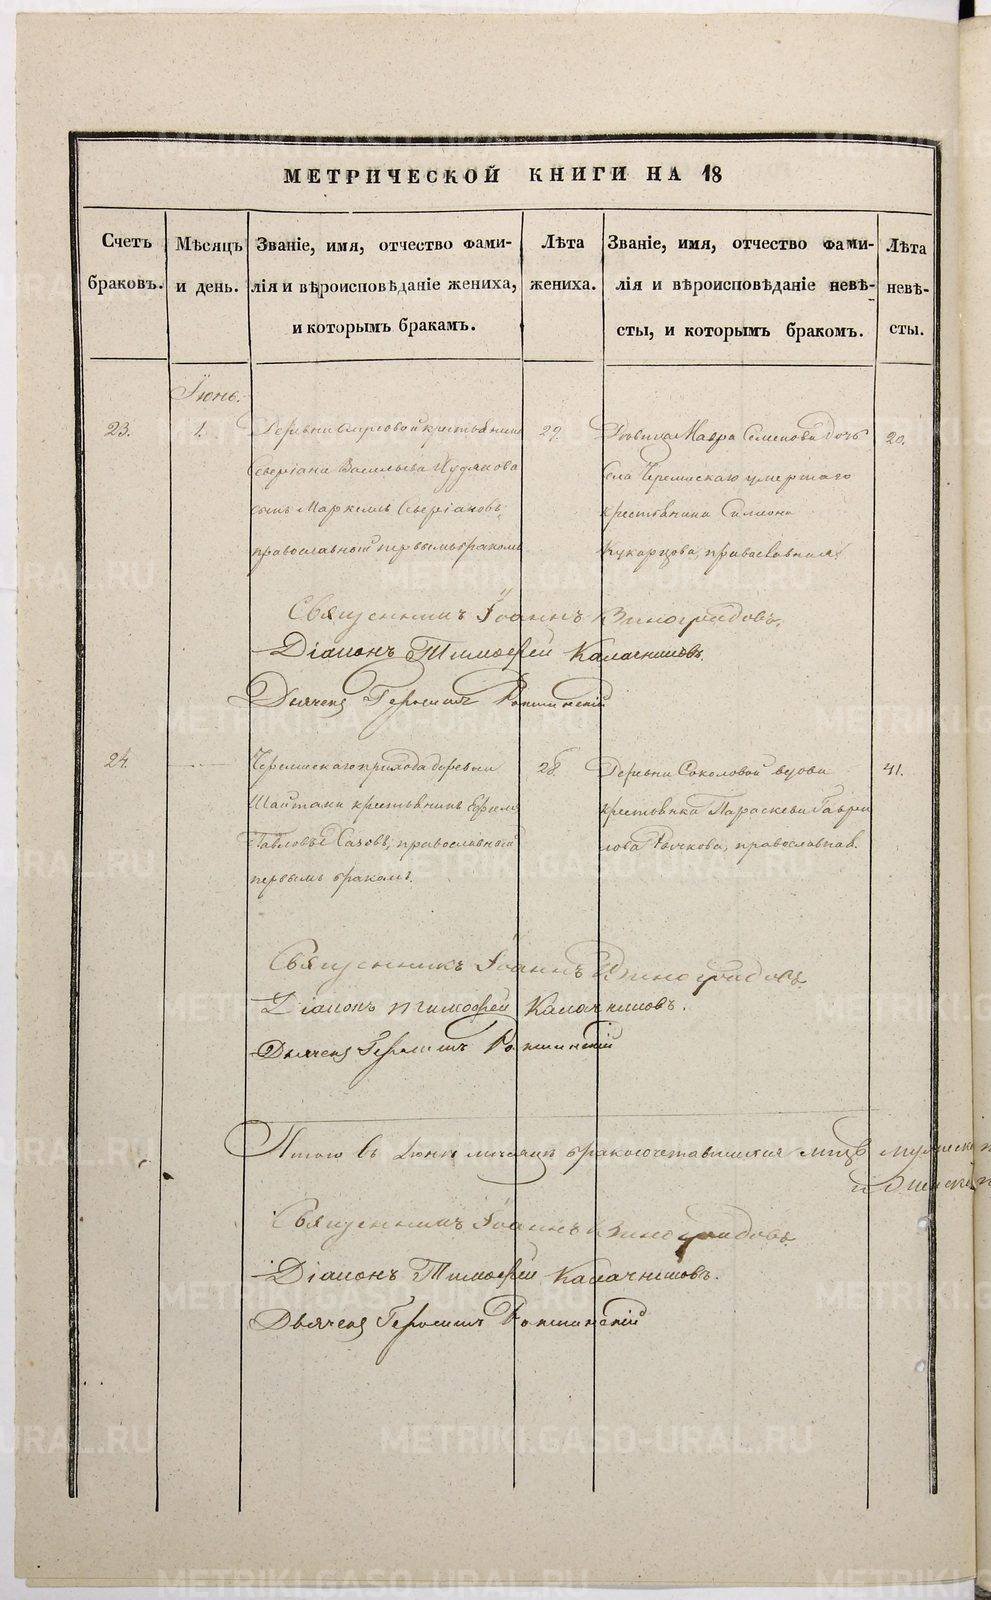 МЕТРИЧЕСКОЙ КНИГИ НА 18
Счетъ браковъ.
Мѣсяцъ и день.
Званіе, имя, отчество фами-
лія и вѣроисповѣданіе жениха,
и которымъ бракамъ.
Лѣта жениха.
Званіе, имя, отчество фами-
лія и вѣроисповѣданіе невѣ-
сты, и которымъ бракомъ.
Лѣта невѣ-
сты.
Іюнь.
23.
1.
Деревни крестьянина
Северіана Васильева Худякова
сынъ Маркелъ Северіановъ,
православный первымъ бракомъ
29.
Дѣвица Мавра Семенова дочь
села Черемисскаго умершаго
крестьянина Симеона
Кукарцова, православная.
20.
Священникъ Іоаннъ Виноградовъ.
Діаконъ Тимофей Калачниковъ.
Дьячекъ Герасимъ
24.
Черемисскаго прихода деревни
Шайтанки крестьянинъ Ефимъ
Павловъ, православный
первымъ бракомъ.
28.
Деревни Соколовой вдова
крестьянка Параскева Гаври
лова Рычкова, православная.
41.
Священникъ Іоаннъ Виноградовъ
Діаконъ Тимофей Калачниковъ.
Дьячекъ Герасимъ
Итого въ Іюнѣ мѣсяцѣ бракосочетавшихся лицъ мужеска п
и женска п
Священникъ Іоаннъ Виноградовъ.
Діаконъ Тимофей Калачниковъ.
Дьячекъ Герасимъ
METRIKI.GASO-URAL.RU